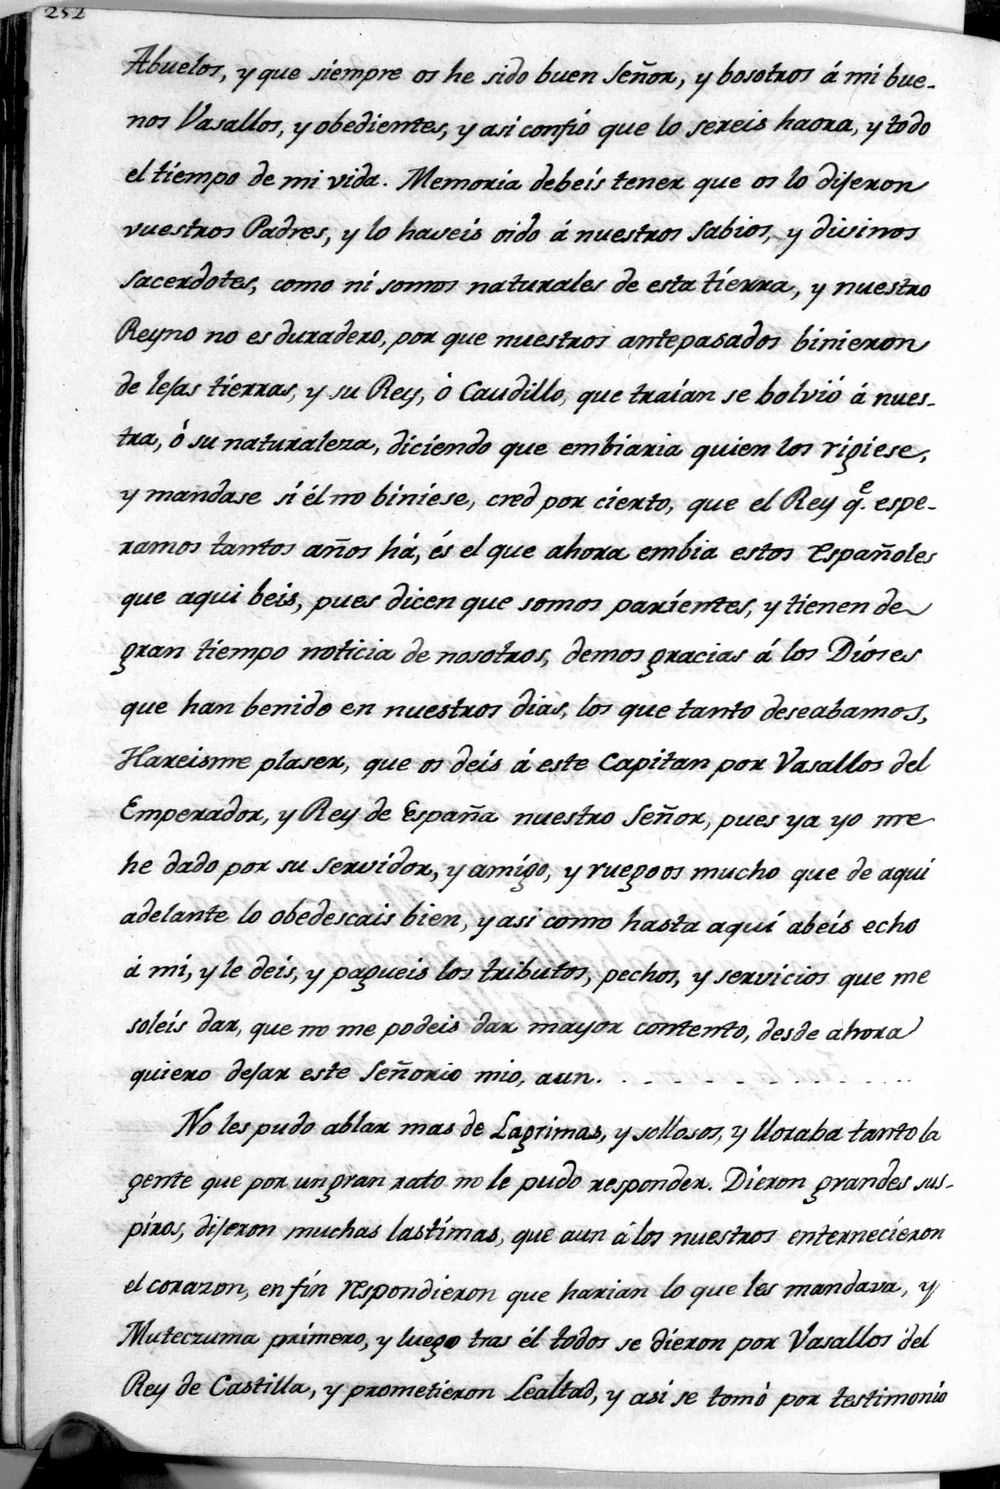 252
Abuelos, y que siempre os he sido buen Señor, y bosotros á mi bue-
nos Vasallos, y obedientes, y asi confió que lo sereis haora, y todo
el tiempo de mi vida. Memoria debeis tener que os lo dijeron
vuestros Padres, y lo haveis oido á nuestros Sabios, y divinos
sacerdotes, como ni somos naturales de esta tierra, y nuestro
Reyno no es duradero, por que nuestros antepasados binieron
de lejas tierras, y su Rey, ò Caudillo, que traían se bolvió á nues-
tra, ó su naturaleza, diciendo que embiaria quien los rigiese,
y mandase si él no biniese, cred por cierto, que el Rey q.e espe-
ramos tantos años há, és el que ahora embia estos Españoles
que aqui beis, pues dicen que somos parientes, y tienen de
gran tiempo noticia de nosotros, demos gracias á los Dioses
que han benido en nuestros dias, los que tanto deseabamos,
Hareisme plaser, que os deis á este Capitan por Vasallos del
Emperador, y Rey de España nuestro Señor, pues ya yo me
he dado por su servidor, y amigo, y ruegoos mucho que de aqui
adelante lo obedescais bien, y asi como hasta aquí abeis echo
á mi, y le deis, y pagueis los tributos, pechos, y servicios que me
soleis dar, que no me podeis dar mayor contento, desde ahora
quiero dejar este Señorio mio, aun. . - - - - - - - . . . .
No les pudo ablar mas de Lagrimas, y sollosos, y lloraba tanto la
gente que por un gran rato no le pudo responder. Dieron grandes sus-
piros, dijeron muchas lastimas, que aun á los nuestros enternecieron
el corazon, en fin respondieron que harian lo que les mandava, y
Muteczuma primero, y luego tras él todos se dieron por Vasallos del
Rey de Castilla, y prometieron Lealtad, y asi se tomó por testimonio